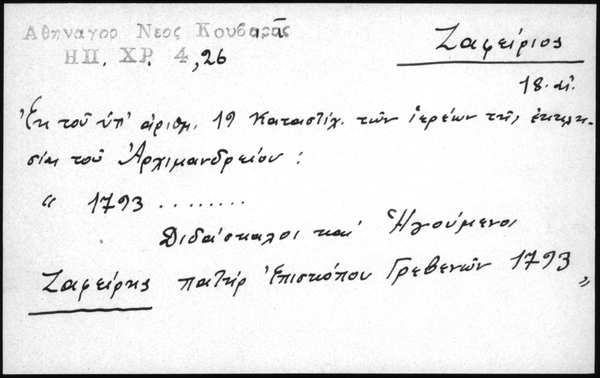 Αθηναγορ Νεος Κουβαρᾶς
ΗΠ. ΧΡ. 4, 26
Ζαφείριος
18. αἰ.
Ἐκ τοῦ ὑπ' ἀριθμ. 19 Καταστίχ. τῶν ἱερέων τῆς ἐκκλη-
σίας τοῦ Ἀρχιμανδρείου :
" 1793 ........
Διδάσκαλοι καὶ Ἡγούμενοι
Ζαφείρης πατὴρ Ἐπισκόπου Γρεβενῶν 1793 "